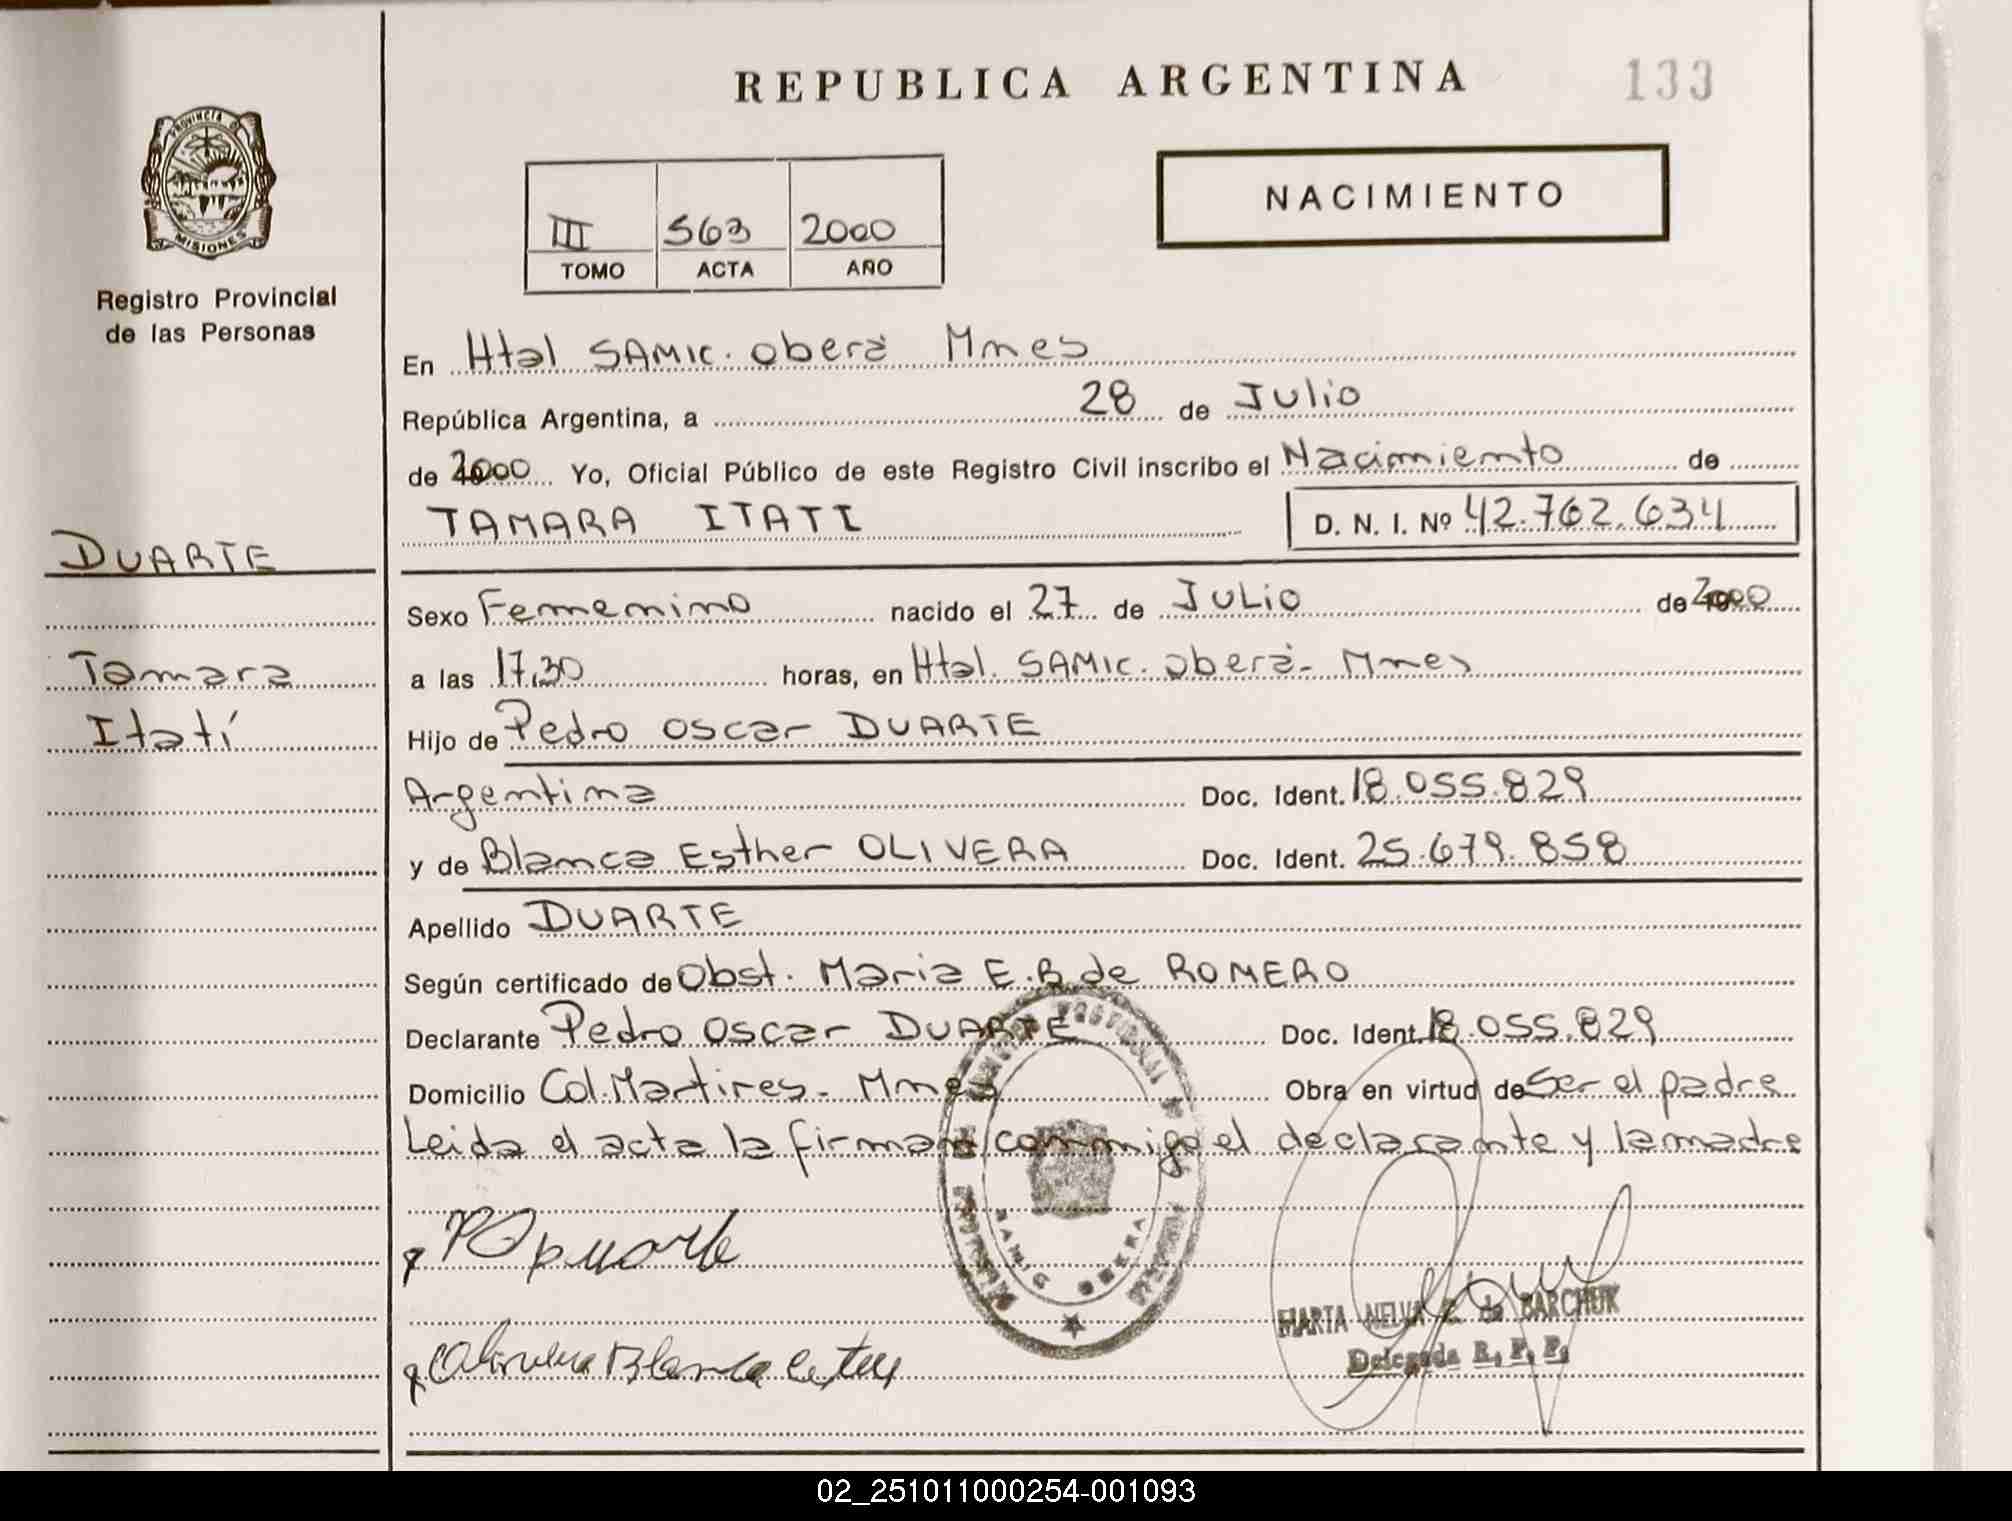 REPUBLICA ARGENTINA
133
PROVINCIA DE
MISIONES
Registro Provincial
de las Personas
NACIMIENTO
III 563 2000
TOMO ACTA AÑO
En Htal SAMIC. oberá Mnes
República Argentina, a 28 de Julio
de 2000 Yo, Oficial Público de este Registro Civil inscribo el Nacimiento de
TAMARA ITATI D. N. I. Nº 42.762.634
DUARTE
Tamara
Itatí
Sexo Femenino nacido el 27 de JULIO de 2000
a las 17,30 horas, en Htal. SAMIC. oberá- Mnes
Hijo de Pedro Oscar DUARTE
Argentina Doc. Ident. 18.055.829
y de Blanca Esther OLIVERA Doc. Ident. 25.679.858
Apellido DUARTE
Según certificado de Obst. Maria E.B de ROMERO
Declarante Pedro Oscar DUARTE Doc. Ident. 18.055.829
Domicilio Col.Martires- Mnes Obra en virtud de Ser el padre
Leida el acta la firman conmigo el declarante y la madre
Duarte
Olivera Blanca
SAMIC OBERA
MARTA NELVA de BARCHUK
Delegada R. P. P.
02_251011000254-001093